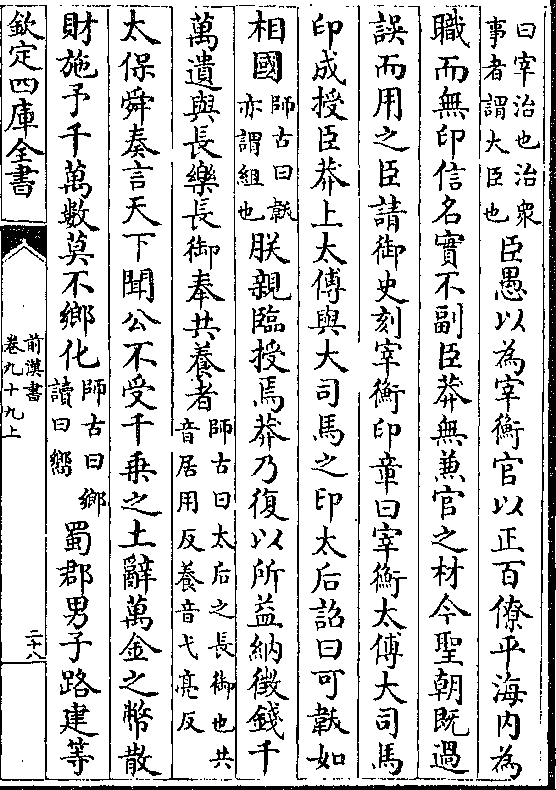 曰宰治也治衆事者謂大臣也臣愚以為宰衡官以正百僚平海内為
職而無印信名實不副臣莽無兼官之材今聖朝既過
誤而用之臣請御史刻宰衡印章曰宰衡太傅大司馬
印成授臣莽上太傅與大司馬之印太后詔曰可韍如
相國師古曰韍亦謂組也朕親臨授焉莽乃復以所益納徵錢千
萬遺與長樂長御奉共養者師古曰太后之長御也共音居用反養音弋亮反
太保舜奏言天下聞公不受千乗之土辭萬金之幣散
財施予千萬數莫不鄉化師古曰鄉讀曰嚮蜀郡男子路建等
欽定四庫全書
前漢書
卷九十九上
二十八